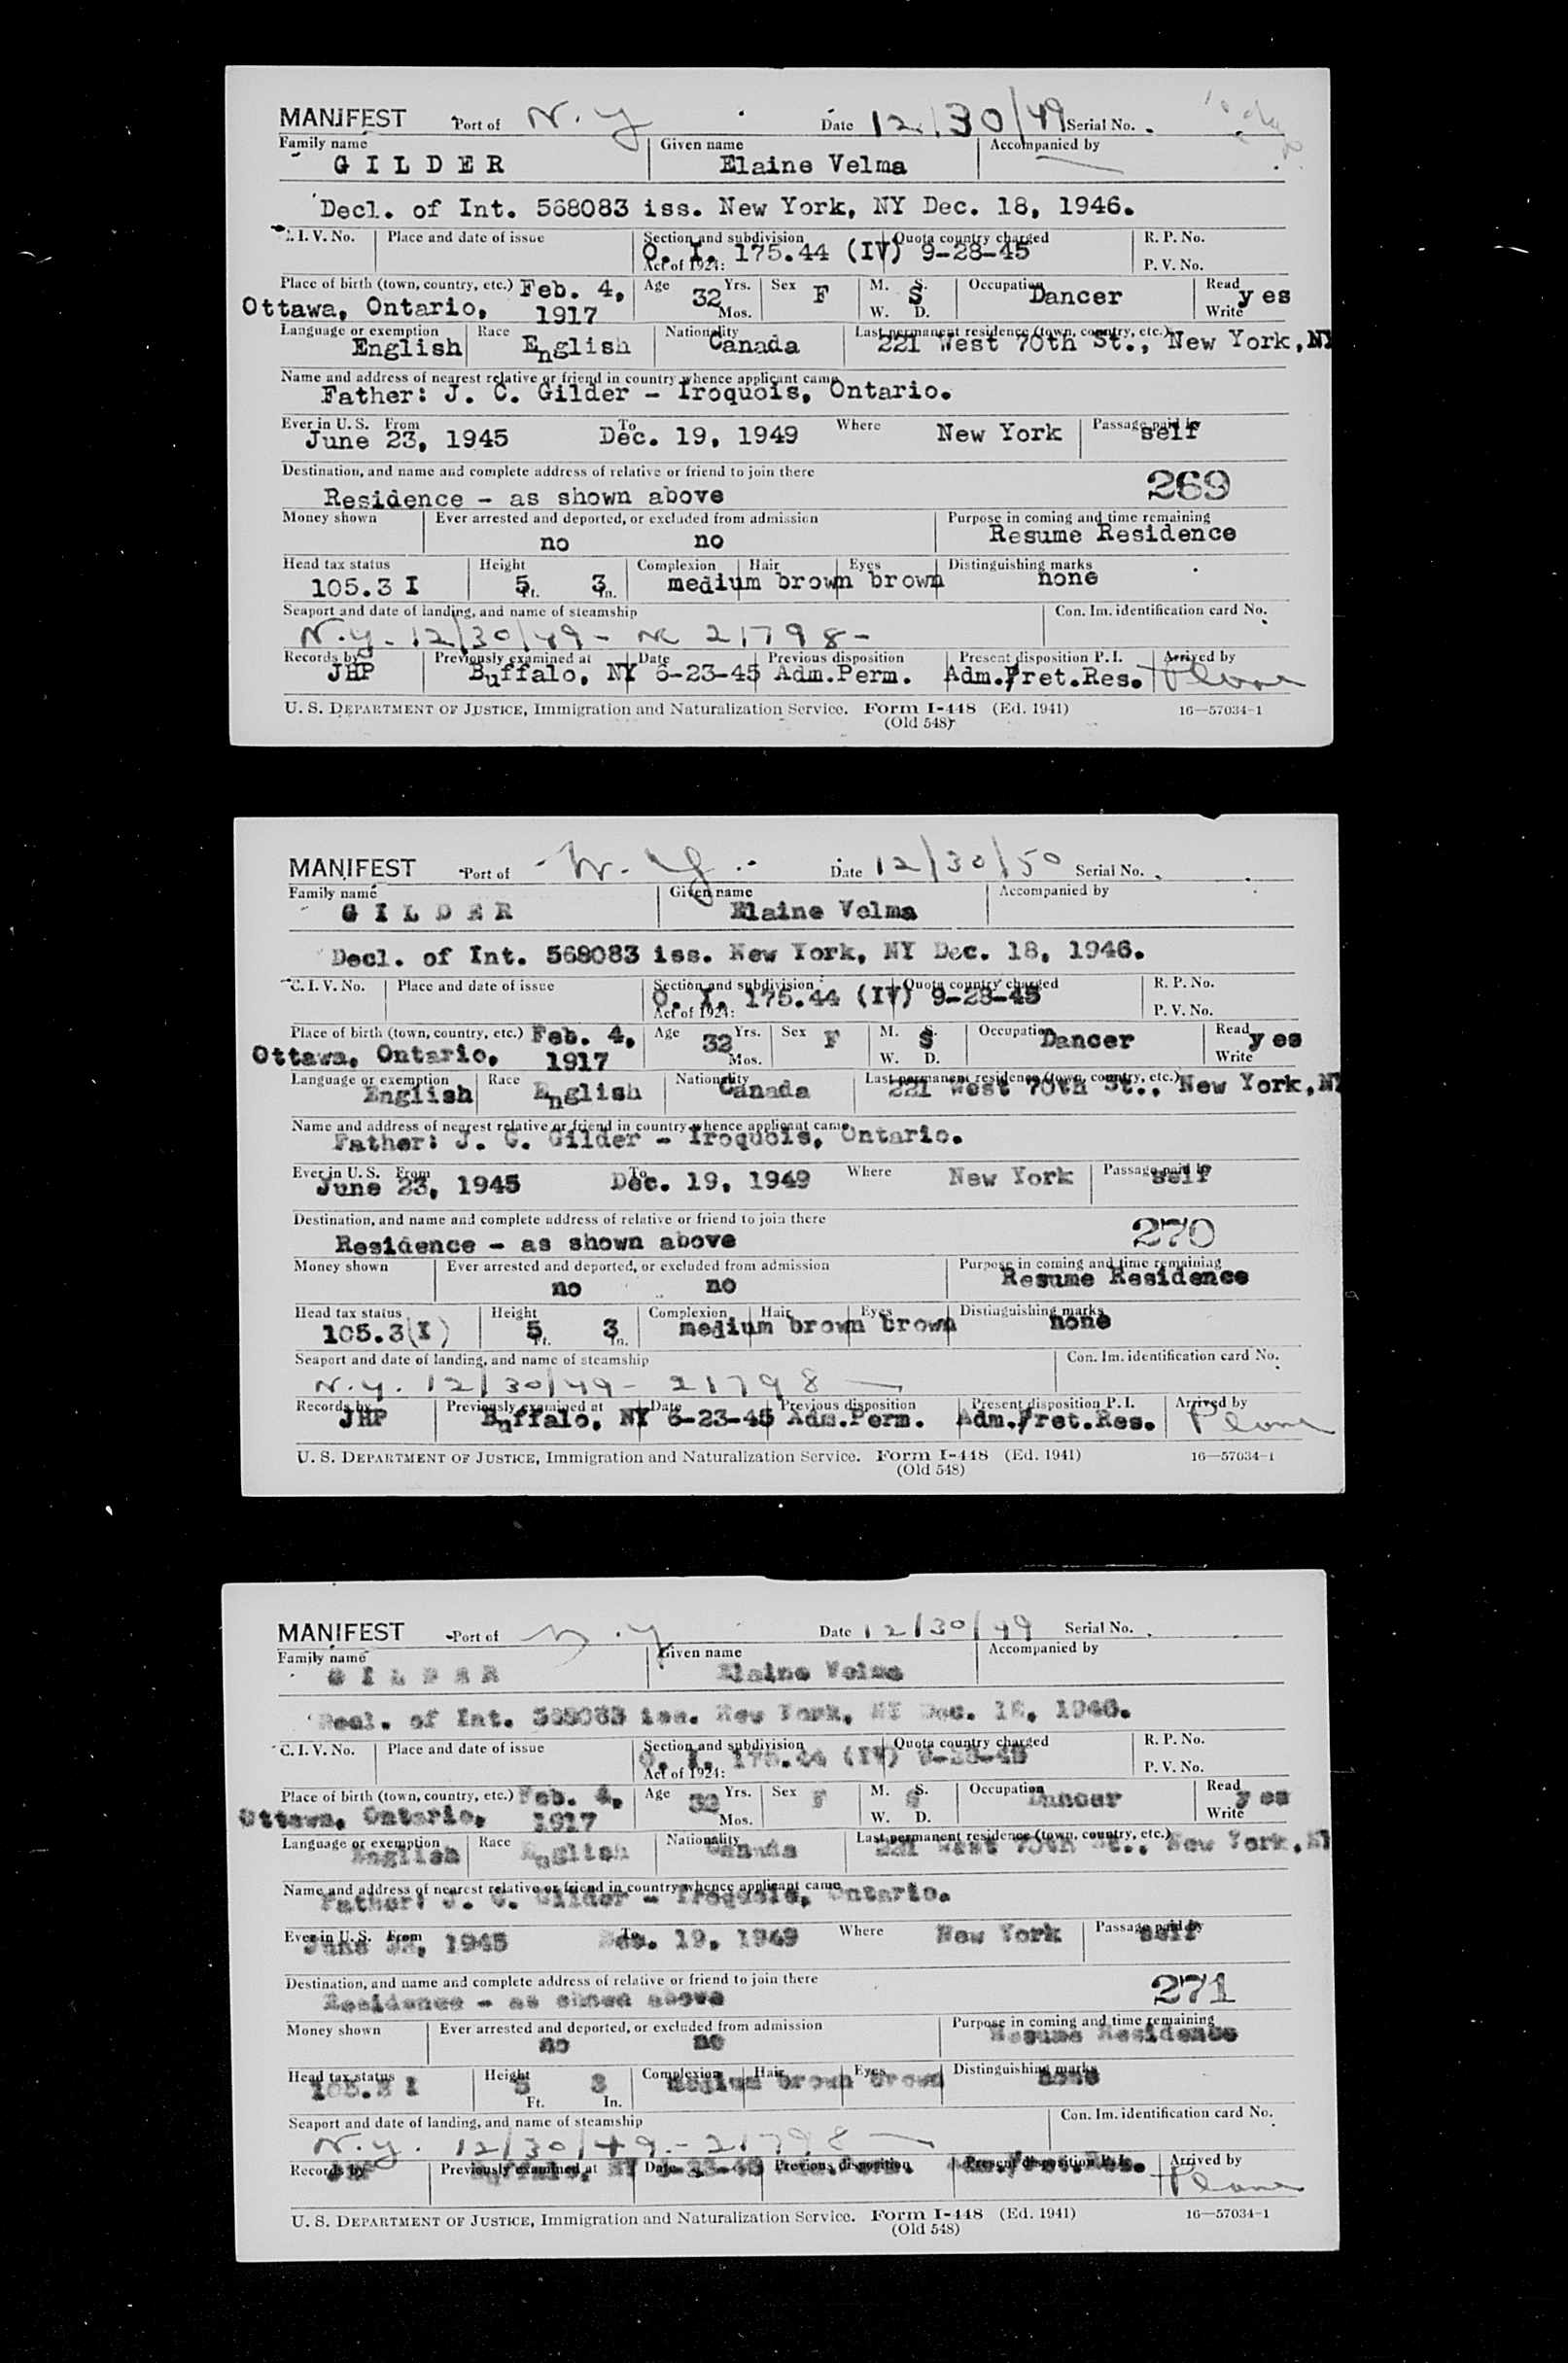 MANIFEST Port of N. Y Date 12/30/49 Serial No.
Family name Given name Accompanied by
GILDER Elaine Velma
Decl. of Int. 568083 iss. New York, NY Dec. 18, 1946.
C. I. V. No. Place and date of issue Section and subdivision Quota country charged R. P. No.
O. I. 175.44 (IV) 9-28-45
Act of 1924: P. V. No.
Place of birth (town, country, etc.) Feb. 4, Age 32 Yrs. Sex F M. S. S Occupation Dancer Read yes
Ottawa, Ontario, 1917 Mos. W. D. Write
Language or exemption Race Nationality Last permanent residence (town, country, etc.)
English English Canada 221 West 70th St., New York, NY
Name and address of nearest relative or friend in country whence applicant came
Father: J. C. Gilder - Iroquois, Ontario.
Ever in U. S. From To Where Passage paid by
June 23, 1945 Dec. 19, 1949 New York self
Destination, and name and complete address of relative or friend to join there
Residence - as shown above 269
Money shown Ever arrested and deported, or excluded from admission Purpose in coming and time remaining
no no Resume Residence
Head tax status Height Complexion Hair Eyes Distinguishing marks
105.3 I 5 Ft. 3 In. medium brown brown none
Seaport and date of landing, and name of steamship Con. Im. identification card No.
N.Y. 12/30/49 - 21798 -
Records by Previously examined at Date Previous disposition Present disposition P. I. Arrived by
JHP Buffalo, NY 6-23-45 Adm.Perm. Adm./ret.Res. Plane
U. S. DEPARTMENT OF JUSTICE, Immigration and Naturalization Service. Form I-448 (Ed. 1941) 16—57034-1
(Old 548)
MANIFEST Port of N. Y. Date 12/30/50 Serial No.
Family name Given name Accompanied by
GILDER Elaine Velma
Decl. of Int. 568083 iss. New York, NY Dec. 18, 1946.
C. I. V. No. Place and date of issue Section and subdivision Quota country charged R. P. No.
O. I. 175.44 (IV) 9-28-45
Act of 1924: P. V. No.
Place of birth (town, country, etc.) Feb. 4, Age 32 Yrs. Sex F M. S. S Occupation Dancer Read yes
Ottawa, Ontario, 1917 Mos. W. D. Write
Language or exemption Race Nationality Last permanent residence (town, country, etc.)
English English Canada 221 West 70th St., New York, NY
Name and address of nearest relative or friend in country whence applicant came
Father: J. C. Gilder - Iroquois, Ontario.
Ever in U. S. From To Where Passage paid by
June 23, 1945 Dec. 19, 1949 New York self
Destination, and name and complete address of relative or friend to join there
Residence - as shown above 270
Money shown Ever arrested and deported, or excluded from admission Purpose in coming and time remaining
no no Resume Residence
Head tax status Height Complexion Hair Eyes Distinguishing marks
105.3(I) 5 Ft. 3 In. medium brown brown none
Seaport and date of landing, and name of steamship Con. Im. identification card No.
N.Y. 12/30/49 - 21798 —
Records by Previously examined at Date Previous disposition Present disposition P. I. Arrived by
JHP Buffalo, NY 6-23-45 Adm.Perm. Adm./ret.Res. Plane
U. S. DEPARTMENT OF JUSTICE, Immigration and Naturalization Service. Form I-448 (Ed. 1941) 16—57034-1
(Old 548)
MANIFEST Port of N. Y Date 12/30/49 Serial No.
Family name Given name Accompanied by
GILDER Elaine Velma
Decl. of Int. 568083 iss. New York, NY Dec. 18, 1946.
C. I. V. No. Place and date of issue Section and subdivision Quota country charged R. P. No.
O. I. 175.44 (IV) 9-28-45
Act of 1924: P. V. No.
Place of birth (town, country, etc.) Feb. 4, Age 32 Yrs. Sex F M. S. S Occupation Dancer Read yes
Ottawa, Ontario, 1917 Mos. W. D. Write
Language or exemption Race Nationality Last permanent residence (town, country, etc.)
English English Canada 221 West 70th St., New York, NY
Name and address of nearest relative or friend in country whence applicant came
Father: J. C. Gilder - Iroquois, Ontario.
Ever in U. S. From To Where Passage paid by
June 23, 1945 Dec. 19, 1949 New York self
Destination, and name and complete address of relative or friend to join there
Residence - as shown above 271
Money shown Ever arrested and deported, or excluded from admission Purpose in coming and time remaining
no no Resume Residence
Head tax status Height Complexion Hair Eyes Distinguishing marks
105.3 I 5 Ft. 3 In. medium brown brown none
Seaport and date of landing, and name of steamship Con. Im. identification card No.
N.Y. 12/30/49 - 21798 —
Records by Previously examined at Date Previous disposition Present disposition P. I. Arrived by
Buffalo, NY 6-23-45 Adm./ret.Res. Plane
U. S. DEPARTMENT OF JUSTICE, Immigration and Naturalization Service. Form I-448 (Ed. 1941) 16—57034-1
(Old 548)